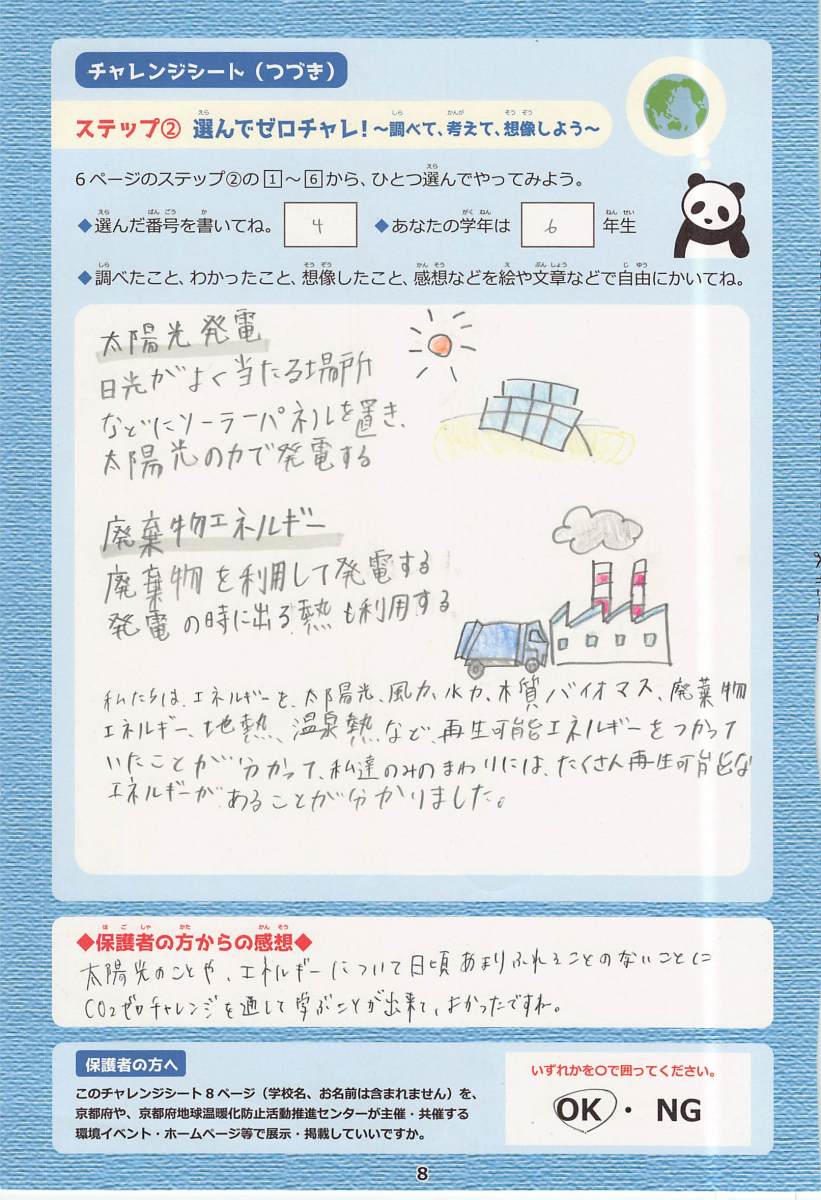 チャレンジシート（つづき）
ステップ② 選んでゼロチャレ！～調べて、考えて、想像しよう～
6ページのステップ②の1～6から、ひとつ選んでやってみよう。
◆選んだ番号を書いてね。 4 ◆あなたの学年は 6 年生
◆調べたこと、わかったこと、想像したこと、感想などを絵や文章などで自由にかいてね。
太陽光発電
日光がよく当たる場所
などにソーラーパネルを置き、
太陽光の力で発電する
廃棄物エネルギー
廃棄物を利用して発電する
発電の時に出る熱も利用する
私たちは、エネルギーを、太陽光、風力、水力、木質バイオマス、廃棄物
エネルギー、地熱、温泉熱など、再生可能エネルギーをつかって
いたことが分かって、私達のみのまわりには、たくさん再生可能な
エネルギーがあることが分かりました。
◆保護者の方からの感想◆
太陽光のことや、エネルギーについて日頃あまりふれることのないことに
CO2ゼロチャレンジを通して学ぶことが出来て、よかったですね。
保護者の方へ
このチャレンジシート8ページ（学校名、お名前は含まれません）を、
京都府や、京都府地球温暖化防止活動推進センターが主催・共催する
環境イベント・ホームページ等で展示・掲載していいですか。
いずれかを〇で囲ってください。
OK・NG
8